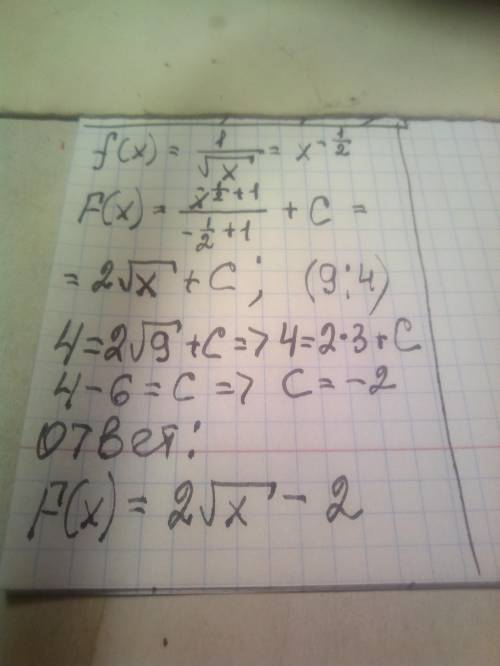 f(x) = 1/√x = x^(-1/2)
F(x) = x^(-1/2+1)/(-1/2+1) + C =
= 2√x + C; (9;4)
4=2√9+C=>4=2·3+C
4-6=C=> C=-2
ответ:
F(x)= 2√x - 2